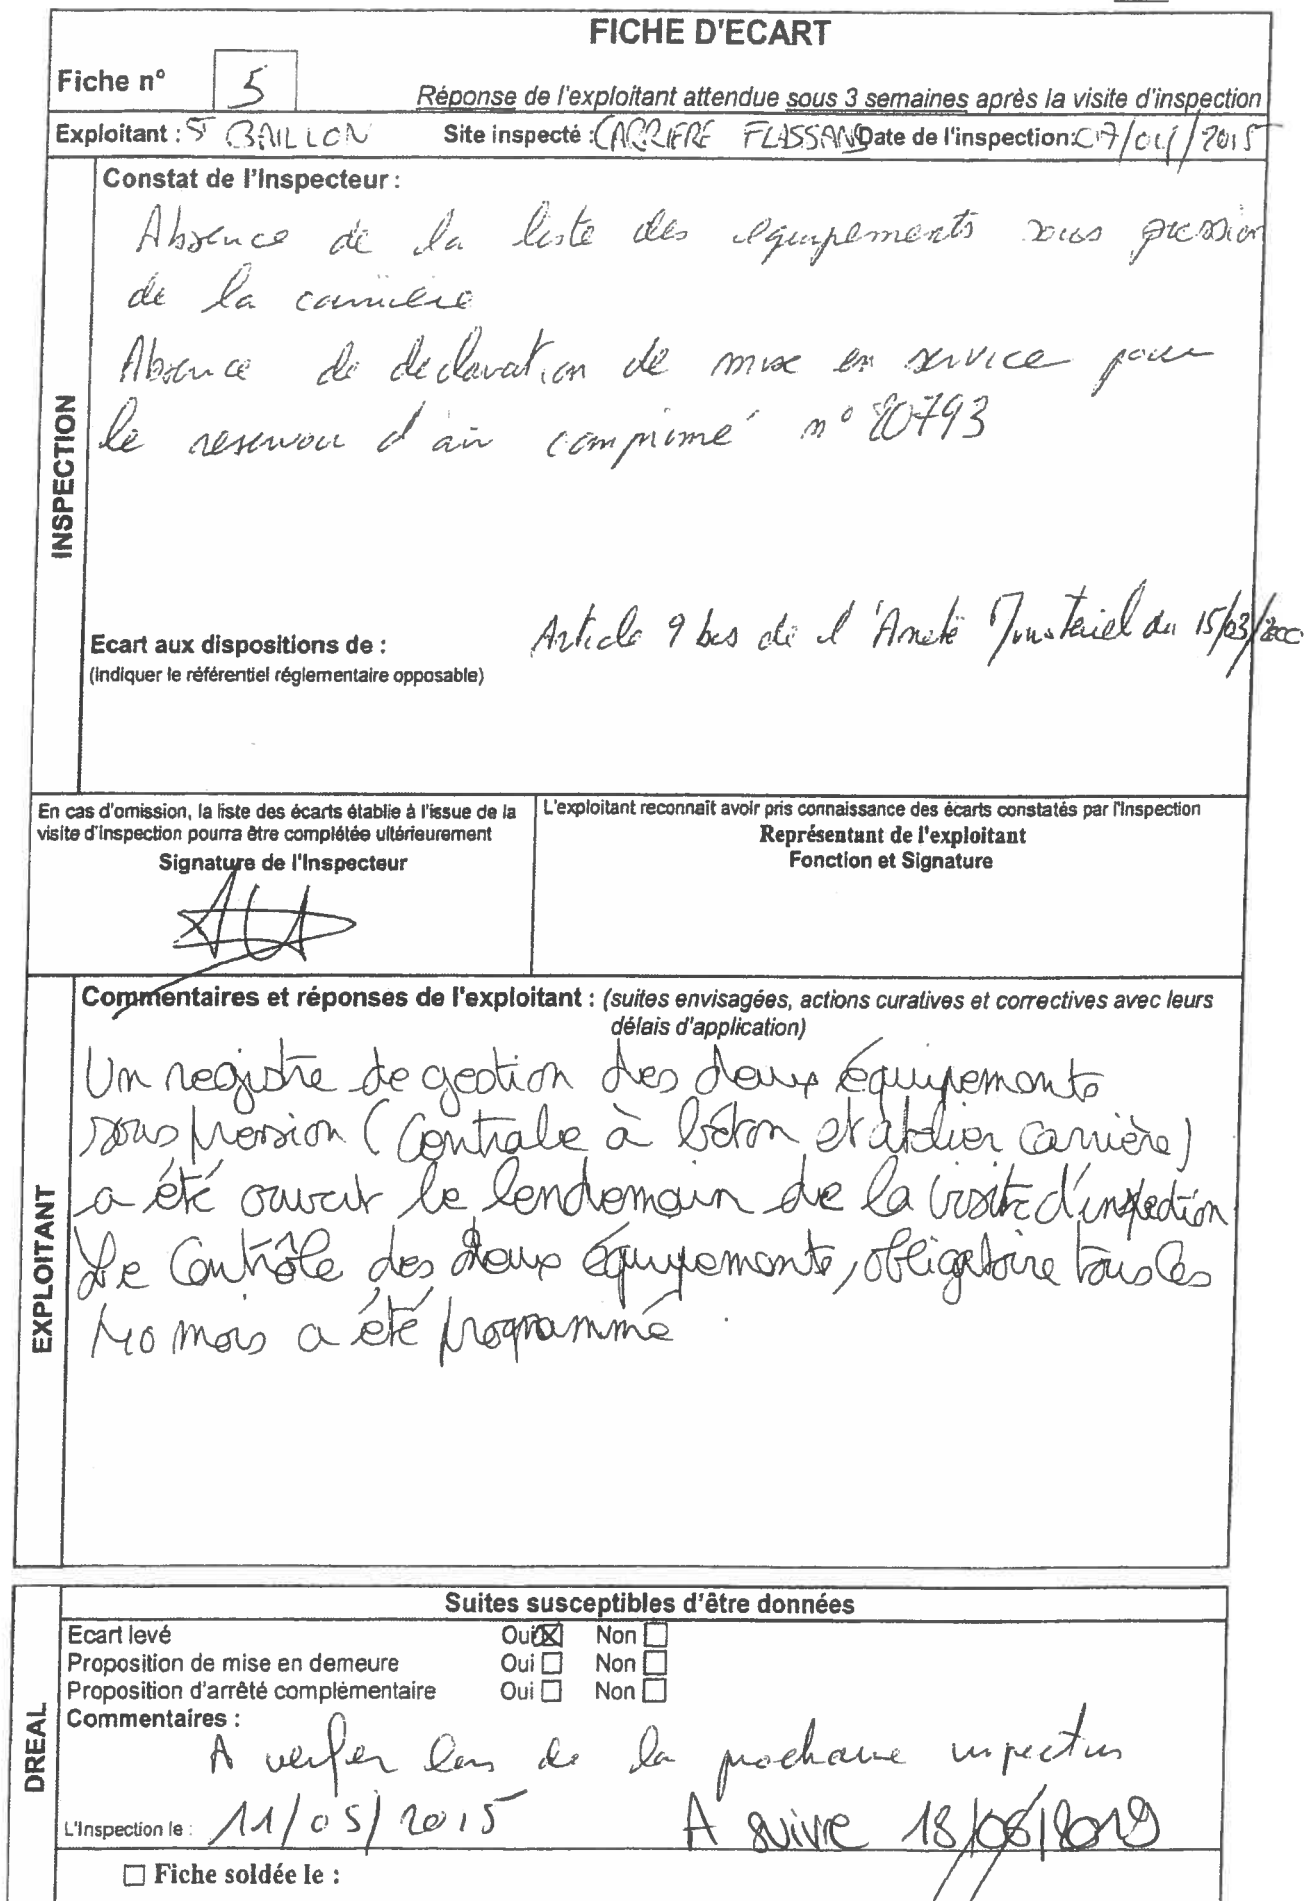 FICHE D'ECART
Fiche n° 5
Réponse de l'exploitant attendue sous 3 semaines après la visite d'inspection
Exploitant : St BAILLON Site inspecté : CARRIERE FLASSANS Date de l'inspection: 07/04/2015
INSPECTION
Constat de l'Inspecteur :
Absence de la liste des equipements sous pression
de la carrière
Absence de declaration de mise en service pour
le reservoir d'air comprimé n° 20793
Ecart aux dispositions de : Article 9 bis de l'Arreté Ministeriel du 15/03/2000
(indiquer le référentiel réglementaire opposable)
En cas d'omission, la liste des écarts établie à l'issue de la
visite d'inspection pourra être complétée ultérieurement
Signature de l'Inspecteur
L'exploitant reconnaît avoir pris connaissance des écarts constatés par l'Inspection
Représentant de l'exploitant
Fonction et Signature
EXPLOITANT
Commentaires et réponses de l'exploitant : (suites envisagées, actions curatives et correctives avec leurs
délais d'application)
Un registre de gestion des deux équipements
sous pression (Centrale à béton et atelier carrière)
a été ouvert le lendemain de la visite d'inspection
Le Contrôle des deux équipements, obligatoire tous les
40 mois a été programmé.
DREAL
Suites susceptibles d'être données
Ecart levé Oui ☒ Non ☐
Proposition de mise en demeure Oui ☐ Non ☐
Proposition d'arrêté complémentaire Oui ☐ Non ☐
Commentaires :
A verifier lors de la prochaine inspection
L'Inspection le : 11/05/2015 A suivre 18/06/2019
☐ Fiche soldée le :